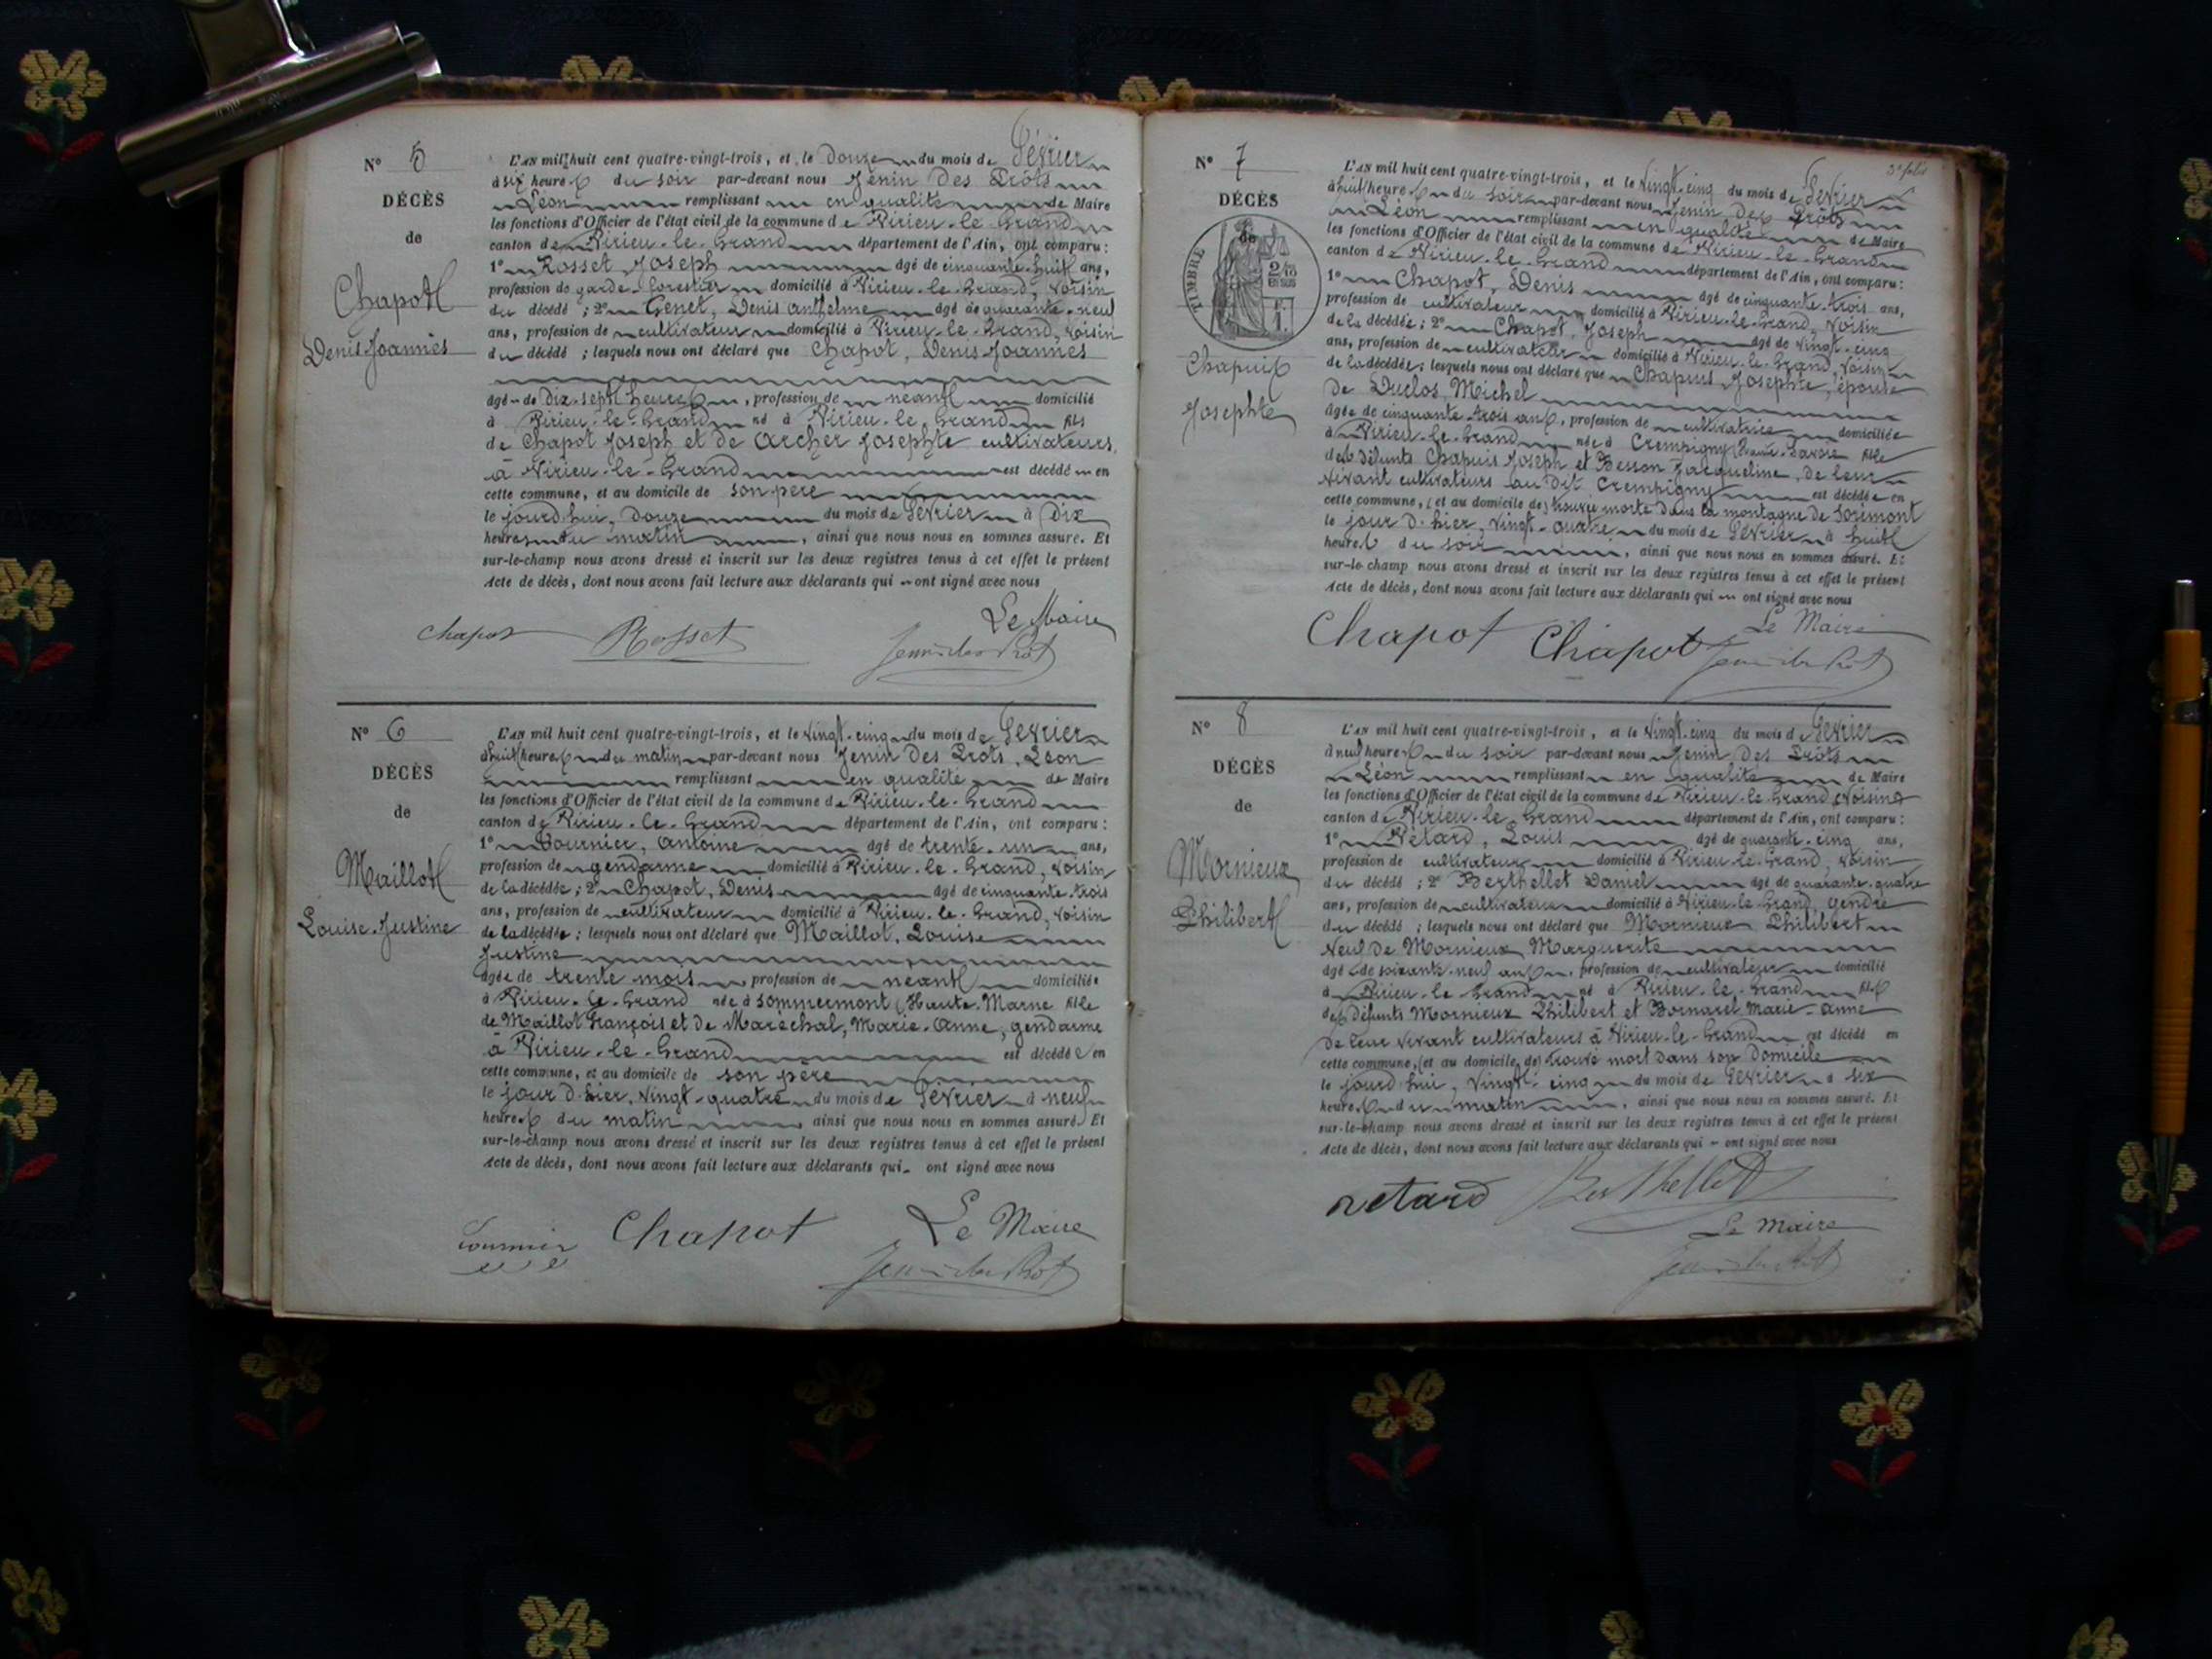 N° 5
DÉCÈS
de
Chapot
Denis Joannès
L'AN mil huit cent quatre-vingt-trois, et le Douze du mois de Février
à six heures du soir par-devant nous Jenin Des Prôts
Léon remplissant en qualité de Maire
les fonctions d'Officier de l'état civil de la commune de Virieu-le-Grand
canton de Virieu-le-Grand département de l'Ain, ont comparu :
1° Rosset Joseph âgé de cinquante-huit ans,
profession de garde-forestier domicilié à Virieu-le-Grand, voisin
du décédé ; 2° Genet, Denis Anthelme âgé de quarante-neuf
ans, profession de cultivateur domicilié à Virieu-le-Grand, voisin
du décédé ; lesquels nous ont déclaré que Chapot, Denis Joannès
âgé de Dix-sept heures, profession de néant domicilié
à Virieu-le-Grand né à Virieu-le-Grand fils
de Chapot Joseph et de Archer Josephte cultivateurs,
à Virieu-le-Grand est décédé en
cette commune, et au domicile de son père
le jourd'hui, Douze du mois de Février à Dix
heures du matin, ainsi que nous nous en sommes assuré. Et
sur-le-champ nous avons dressé et inscrit sur les deux registres tenus à cet effet le présent
Acte de décès, dont nous avons fait lecture aux déclarants qui ont signé avec nous
Le Maire
Chapot Rosset Jenin des Prôts
N° 6
DÉCÈS
de
Maillot
Louise Justine
L'AN mil huit cent quatre-vingt-trois, et le Vingt-cinq du mois de Février
à huit heures du matin par-devant nous Jenin Des Prôts, Léon
remplissant en qualité de Maire
les fonctions d'Officier de l'état civil de la commune de Virieu-le-Grand
canton de Virieu-le-Grand département de l'Ain, ont comparu :
1° Tournier, Antoine âgé de trente-un ans,
profession de gendarme domicilié à Virieu-le-Grand, voisin
de la décédée ; 2° Chapot, Denis âgé de cinquante-trois
ans, profession de cultivateur domicilié à Virieu-le-Grand, voisin
de la décédée ; lesquels nous ont déclaré que Maillot, Louise
Justine
âgée de trente mois profession de néant domiciliée
à Virieu-le-Grand née à Sommermont (Haute-Marne fille
de Maillot François et de Maréchal, Marie-Anne, gendarme
à Virieu-le-Grand est décédée en
cette commune, et au domicile de son père
le jour d'hier, Vingt-quatre du mois de Février à neuf
heures du matin ainsi que nous nous en sommes assuré. Et
sur-le-champ nous avons dressé et inscrit sur les deux registres tenus à cet effet le présent
Acte de décès, dont nous avons fait lecture aux déclarants qui ont signé avec nous
Tournier Chapot Le Maire
Jenin des Prôts
3e folio
N° 7
DÉCÈS
de
TIMBRE
2/10 EN SUS
Chapuis
Josephte
L'AN mil huit cent quatre-vingt-trois, et le Vingt-cinq du mois de Février
à huit heures du soir par-devant nous Jenin des Prôts
Léon remplissant en qualité de Maire
les fonctions d'Officier de l'état civil de la commune de Virieu-le-Grand
canton de Virieu-le-Grand département de l'Ain, ont comparu :
1° Chapot, Denis âgé de cinquante-trois ans,
profession de cultivateur domicilié à Virieu-le-Grand, Voisin
de la décédée ; 2° Chapot, Joseph âgé de vingt-cinq
ans, profession de cultivateur domicilié à Virieu-le-Grand, Voisin
de la décédée ; lesquels nous ont déclaré que Chapuis, Josephte, épouse
de Duclos, Michel
âgée de cinquante-trois ans, profession de cultivatrice domiciliée
à Virieu-le-Grand née à Crempigny (Haute-Savoie fille
des défunts Chapuis Joseph et Besson Jacqueline, de leur
vivant cultivateurs au dit Crempigny est décédée en
cette commune, (et au domicile de) trouvée morte dans la montagne de Sorémont
le jour d'hier, vingt-quatre du mois de Février à huit
heures du soir, ainsi que nous nous en sommes assuré. Et
sur-le-champ nous avons dressé et inscrit sur les deux registres tenus à cet effet le présent
Acte de décès, dont nous avons fait lecture aux déclarants qui ont signé avec nous
Le Maire
Chapot Chapot Jenin des Prôts
N° 8
DÉCÈS
de
Mornieux
Philibert
L'AN mil huit cent quatre-vingt-trois, et le Vingt-cinq du mois de Février
à neuf heures du soir par-devant nous Jenin des Prôts
Léon remplissant en qualité de Maire
les fonctions d'Officier de l'état civil de la commune de Virieu-le-Grand
canton de Virieu-le-Grand département de l'Ain, ont comparu :
1° Rétard, Louis âgé de quarante-cinq ans,
profession de cultivateur domicilié à Virieu-le-Grand, voisin
du décédé ; 2° Berthellet Daniel âgé de quarante-quatre
ans, profession de cultivateur domicilié à Virieu-le-Grand, gendre
du décédé ; lesquels nous ont déclaré que Mornieux Philibert
Veuf de Mornieux Marguerite
âgé de soixante-neuf ans, profession de cultivateur domicilié
à Virieu-le-Grand né à Virieu-le-Grand fils
des défunts Mornieux Philibert et Bornarel Marie-Anne
de leur vivant cultivateurs à Virieu-le-Grand est décédé en
cette commune, (et au domicile de) trouvé mort dans son domicile
le jourd'hui, vingt-cinq du mois de Février à six
heures du matin, ainsi que nous nous en sommes assuré. Et
sur-le-champ nous avons dressé et inscrit sur les deux registres tenus à cet effet le présent
Acte de décès, dont nous avons fait lecture aux déclarants qui ont signé avec nous
retard Berthellet
Le Maire
Jenin des Prôts